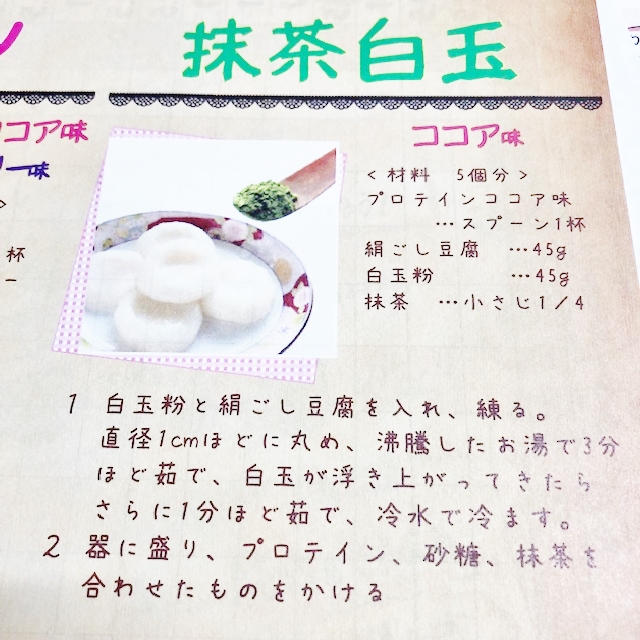 抹茶白玉
ココア味
ココア味
味
杯
<材料 5個分>
プロテインココア味
…スプーン1杯
絹ごし豆腐 …45g
白玉粉 …45g
抹茶 …小さじ1/4
1 白玉粉と絹ごし豆腐を入れ、練る。
直径1cmほどに丸め、沸騰したお湯で3分
ほど茹で、白玉が浮き上がってきたら
さらに1分ほど茹で、冷水で冷ます。
2 器に盛り、プロテイン、砂糖、抹茶を
合わせたものをかける